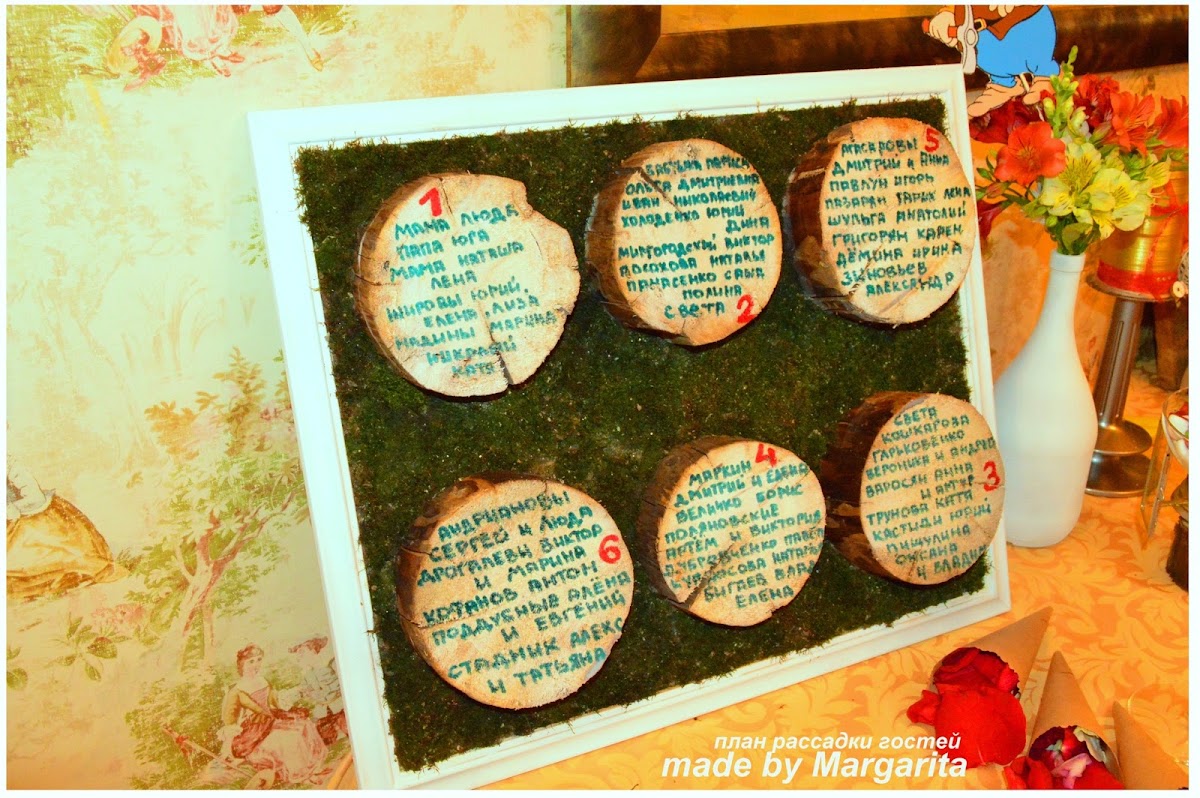 1
МАМА ЛЮДА
ПАПА ЮГА
МАМА НАТАША
ЛЕНА
ЖИРОВЫ ЮРИЙ,
ЕЛЕНА, ЛИЗА
МАРИНА
НИКОЛАЙ
КАТЯ
ЛАРИСА
ОЛЬГА ДМИТРИЕВНА
ИВАН НИКОЛАЕВИЧ
ХОЛОДЕНКО ЮРИЙ
ДИНА
МИРГОРОДСКИЙ ВИКТОР
ПОСОХОВА НАТАЛЬЯ
ПАНАСЕНКО САША
ПОЛИНА
СВЕТА 2
АГАСАРОВЫ 5
ДМИТРИЙ И АННА
ПАВЛУН ИГОРЬ
ЛЕНА
ШУЛЬГА АНАТОЛИЙ
ГРИГОРЯН КАРЕН
ДЁМИНА ИРИНА
ЗИНОВЬЕВ
АЛЕКСАНДР
АНДРИАНОВЫ
СЕРГЕЙ И ЛЮДА
ДРОГАЛЕВЫ ВИКТОР
И МАРИНА 6
АНТОН
ПОДДУБНЫЕ АЛЁНА
И ЕВГЕНИЙ
СТАДНИК АЛЕКС
И ТАТЬЯНА
МАРКИН 4
ДМИТРИЙ И ЕЛЕНА
ВЕЛИЧКО БОРИС
ПОЛЯНОВСКИЕ
АРТЁМ И ВИКТОРИЯ
ПАВЕЛ
БИГАЕВ ВЛАД
ЕЛЕНА
СВЕТА
КОШКАРОВА
ГАРЬКОВЕНКО
ВЕРОНИКА И АНДРЕЙ
ВАРОСЯН АННА
И 3
ТРУНОВА КАТЯ
ЮРИЙ
ПИЩУЛИНА
ОКСАНА
И ВЛАД
план рассадки гостей
made by Margarita